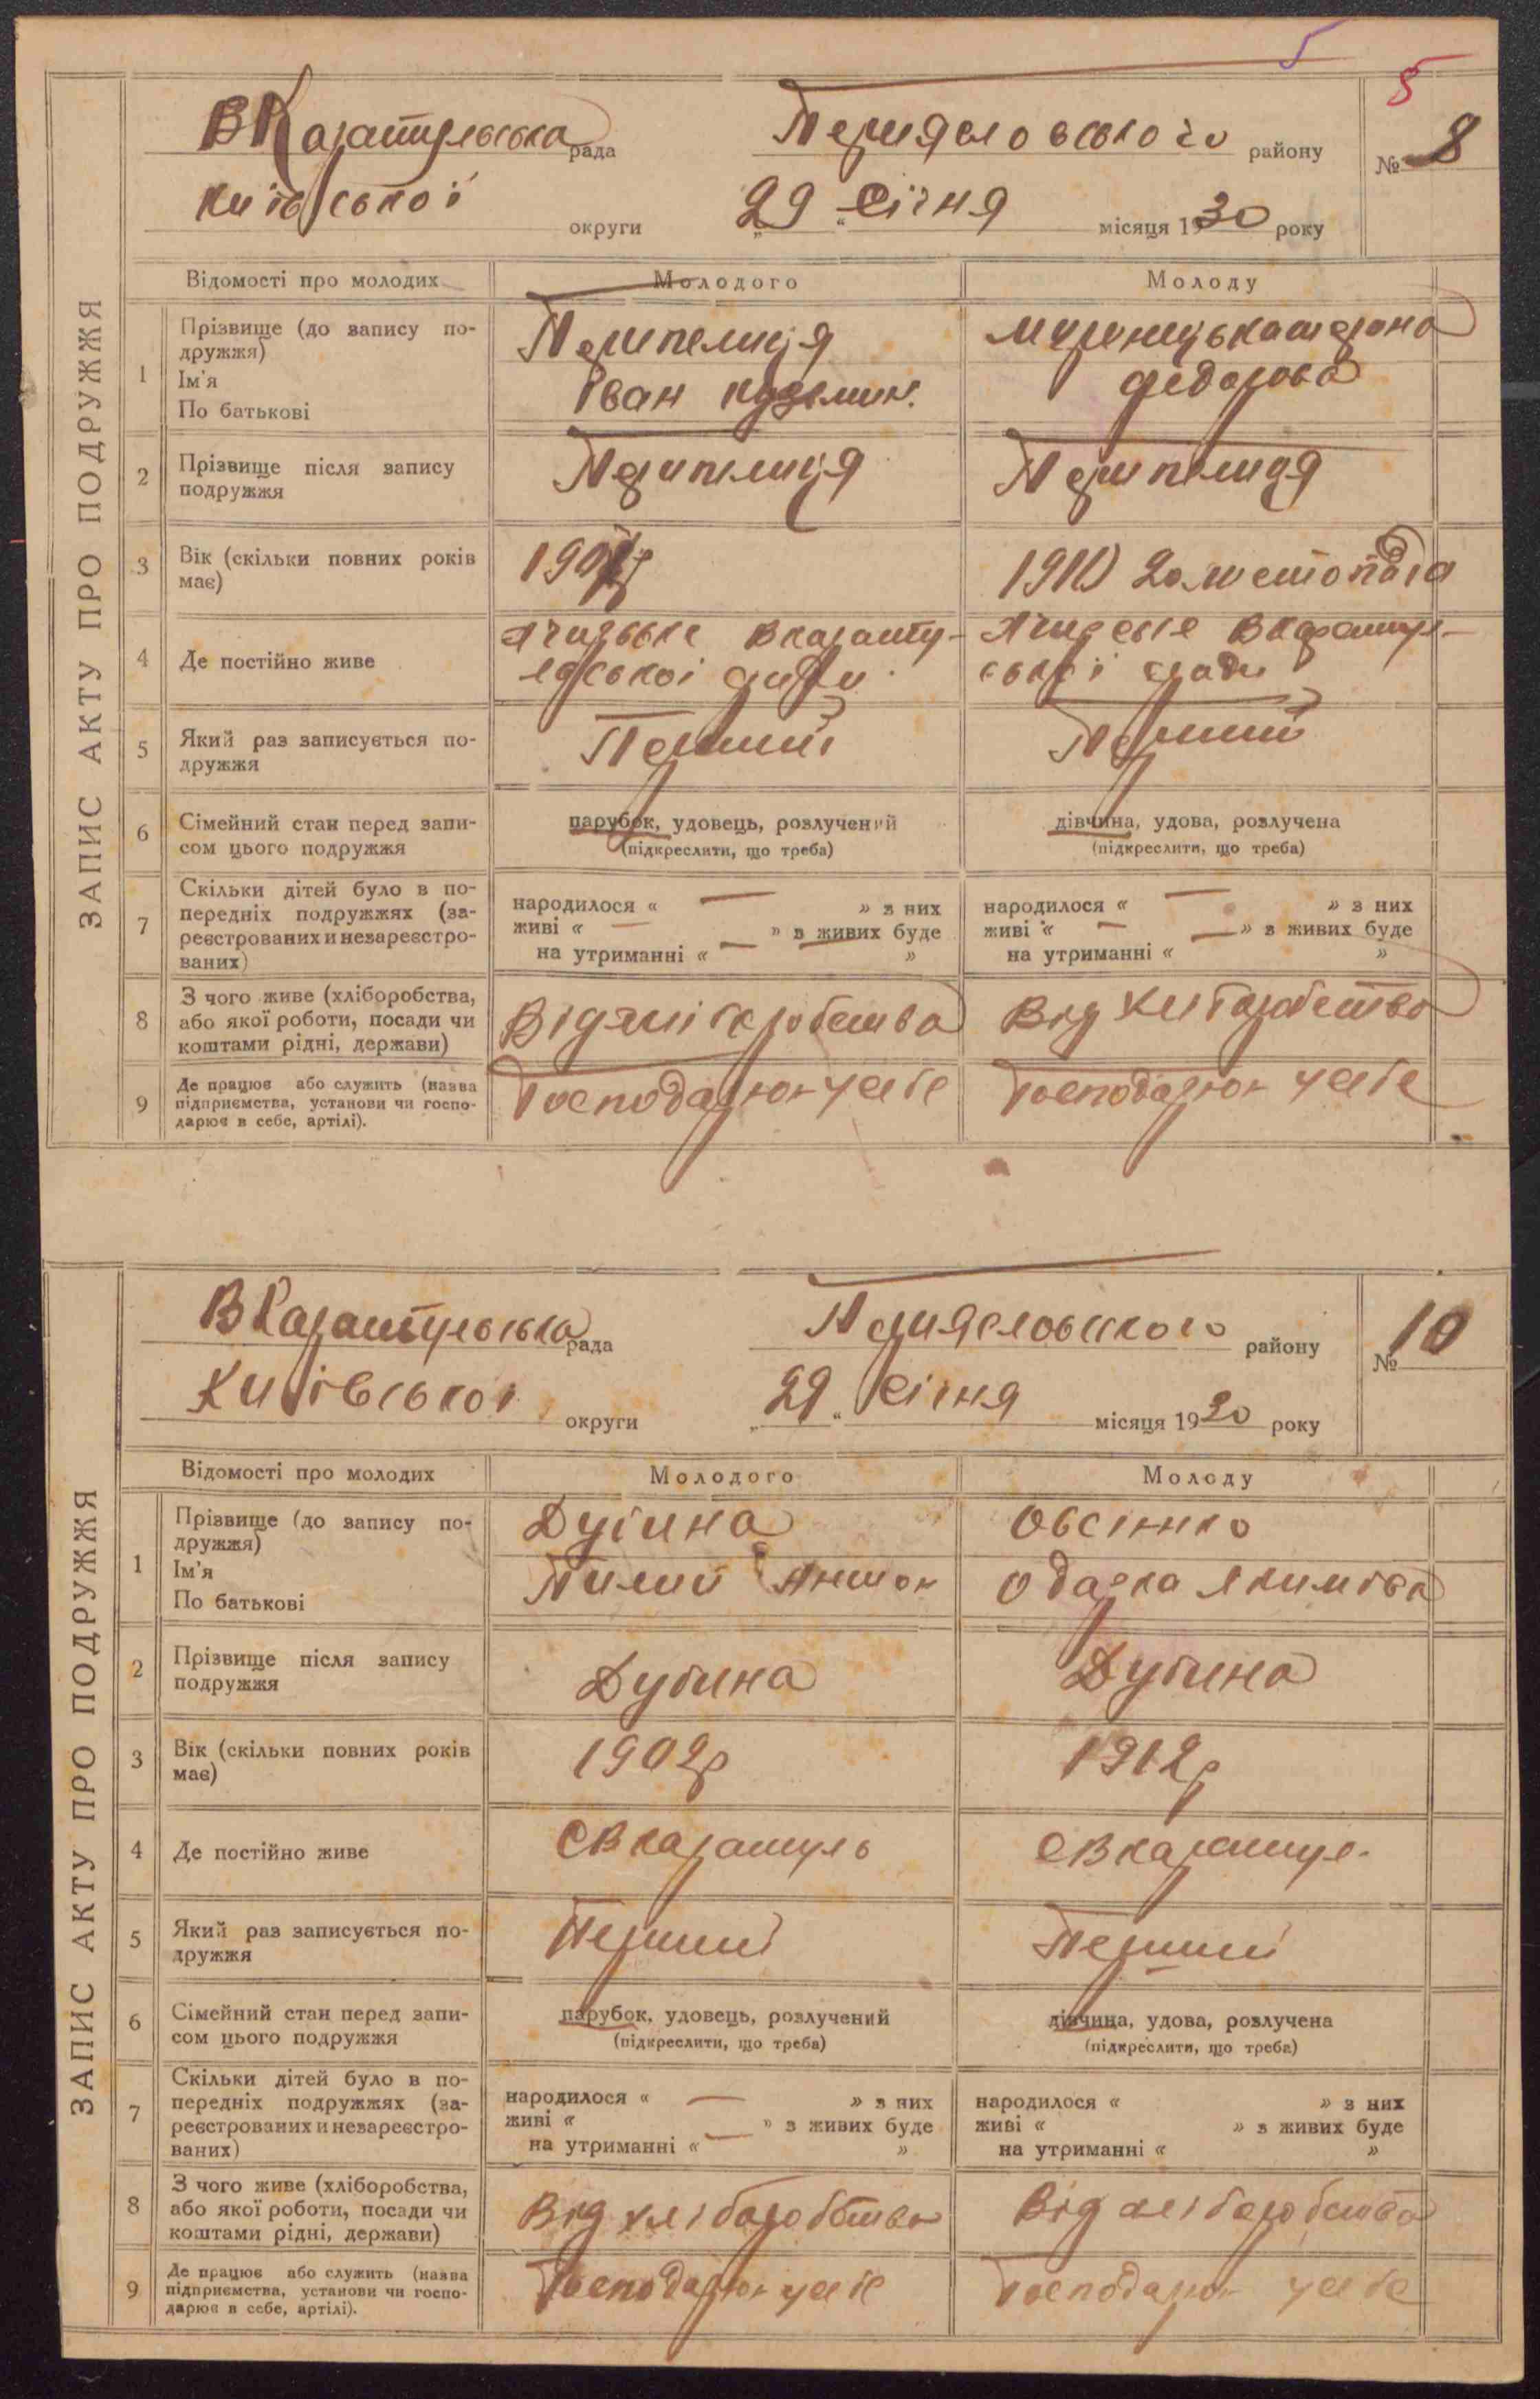 5
5
ЗАПИС АКТУ ПРО ПОДРУЖЖЯ
ВКаратульська рада Переяславського району № 8
Київської округи 29 "Січня місяця 1930 року
Відомості про молодих Молодого Молоду
1 Прізвище (до запису подружжя)
Ім'я
По батькові
Перепелиця
Іван Кузьмин.
федорова
2 Прізвище після запису
подружжя
Перепелиця Перепелиця
3 Вік (скільки повних років
має)
листопада
4 Де постійно живе
ради
5 Який раз записується по-
дружжя
Перший Перший
6 Сімейний стан перед запи-
сом цього подружжя
парубок, удовець, розлучений
(підкреслити, що треба)
дівчина, удова, розлучена
(підкреслити, що треба)
7 Скільки дітей було в по-
передніх подружжях (за-
реєстрованих и незареєстро-
ваних)
народилося « — » з них
живі « — » з живих буде
на утриманні « — »
народилося « — » з них
живі « — » з живих буде
на утриманні « — »
8 З чого живе (хліборобства,
або якої роботи, посади чи
коштами рідні, держави)
Від хліборобства Від хліборобства
9 Де працює або служить (назва
підприємства, установи чи госпо-
дарює в себе, артілі).
Господарює у себе Господарює у себе
ЗАПИС АКТУ ПРО ПОДРУЖЖЯ
ВКаратульська рада Переяславського району № 10
Київської округи „29“ Січня місяця 1930 року
Відомості про молодих Молодого Молоду
1 Прізвище (до запису по-
дружжя)
Ім'я
По батькові
Дубина
Пилип Антон
Овсієнко
Одарка Якимівна
2 Прізвище після запису
подружжя
Дубина Дубина
3 Вік (скільки повних років
має)
1902р 1912р
4 Де постійно живе
СВКаратуль СВКаратул.
5 Який раз записується по-
дружжя
Перший Перший
6 Сімейний стан перед запи-
сом цього подружжя
парубок, удовець, розлучений
(підкреслити, що треба)
дівчина, удова, розлучена
(підкреслити, що треба)
7 Скільки дітей було в по-
передніх подружжях (за-
реєстрованих и незареєстро-
ваних)
народилося « — » з них
живі « » з живих буде
на утриманні « — »
народилося « » з них
живі « » з живих буде
на утриманні « »
8 З чого живе (хліборобства,
або якої роботи, посади чи
коштами рідні, держави)
Від хліборобства Від хліборобства
9 Де працює або служить (назва
підприємства, установи чи госпо-
дарює в себе, артілі).
Господарює у себе Господарює у себе